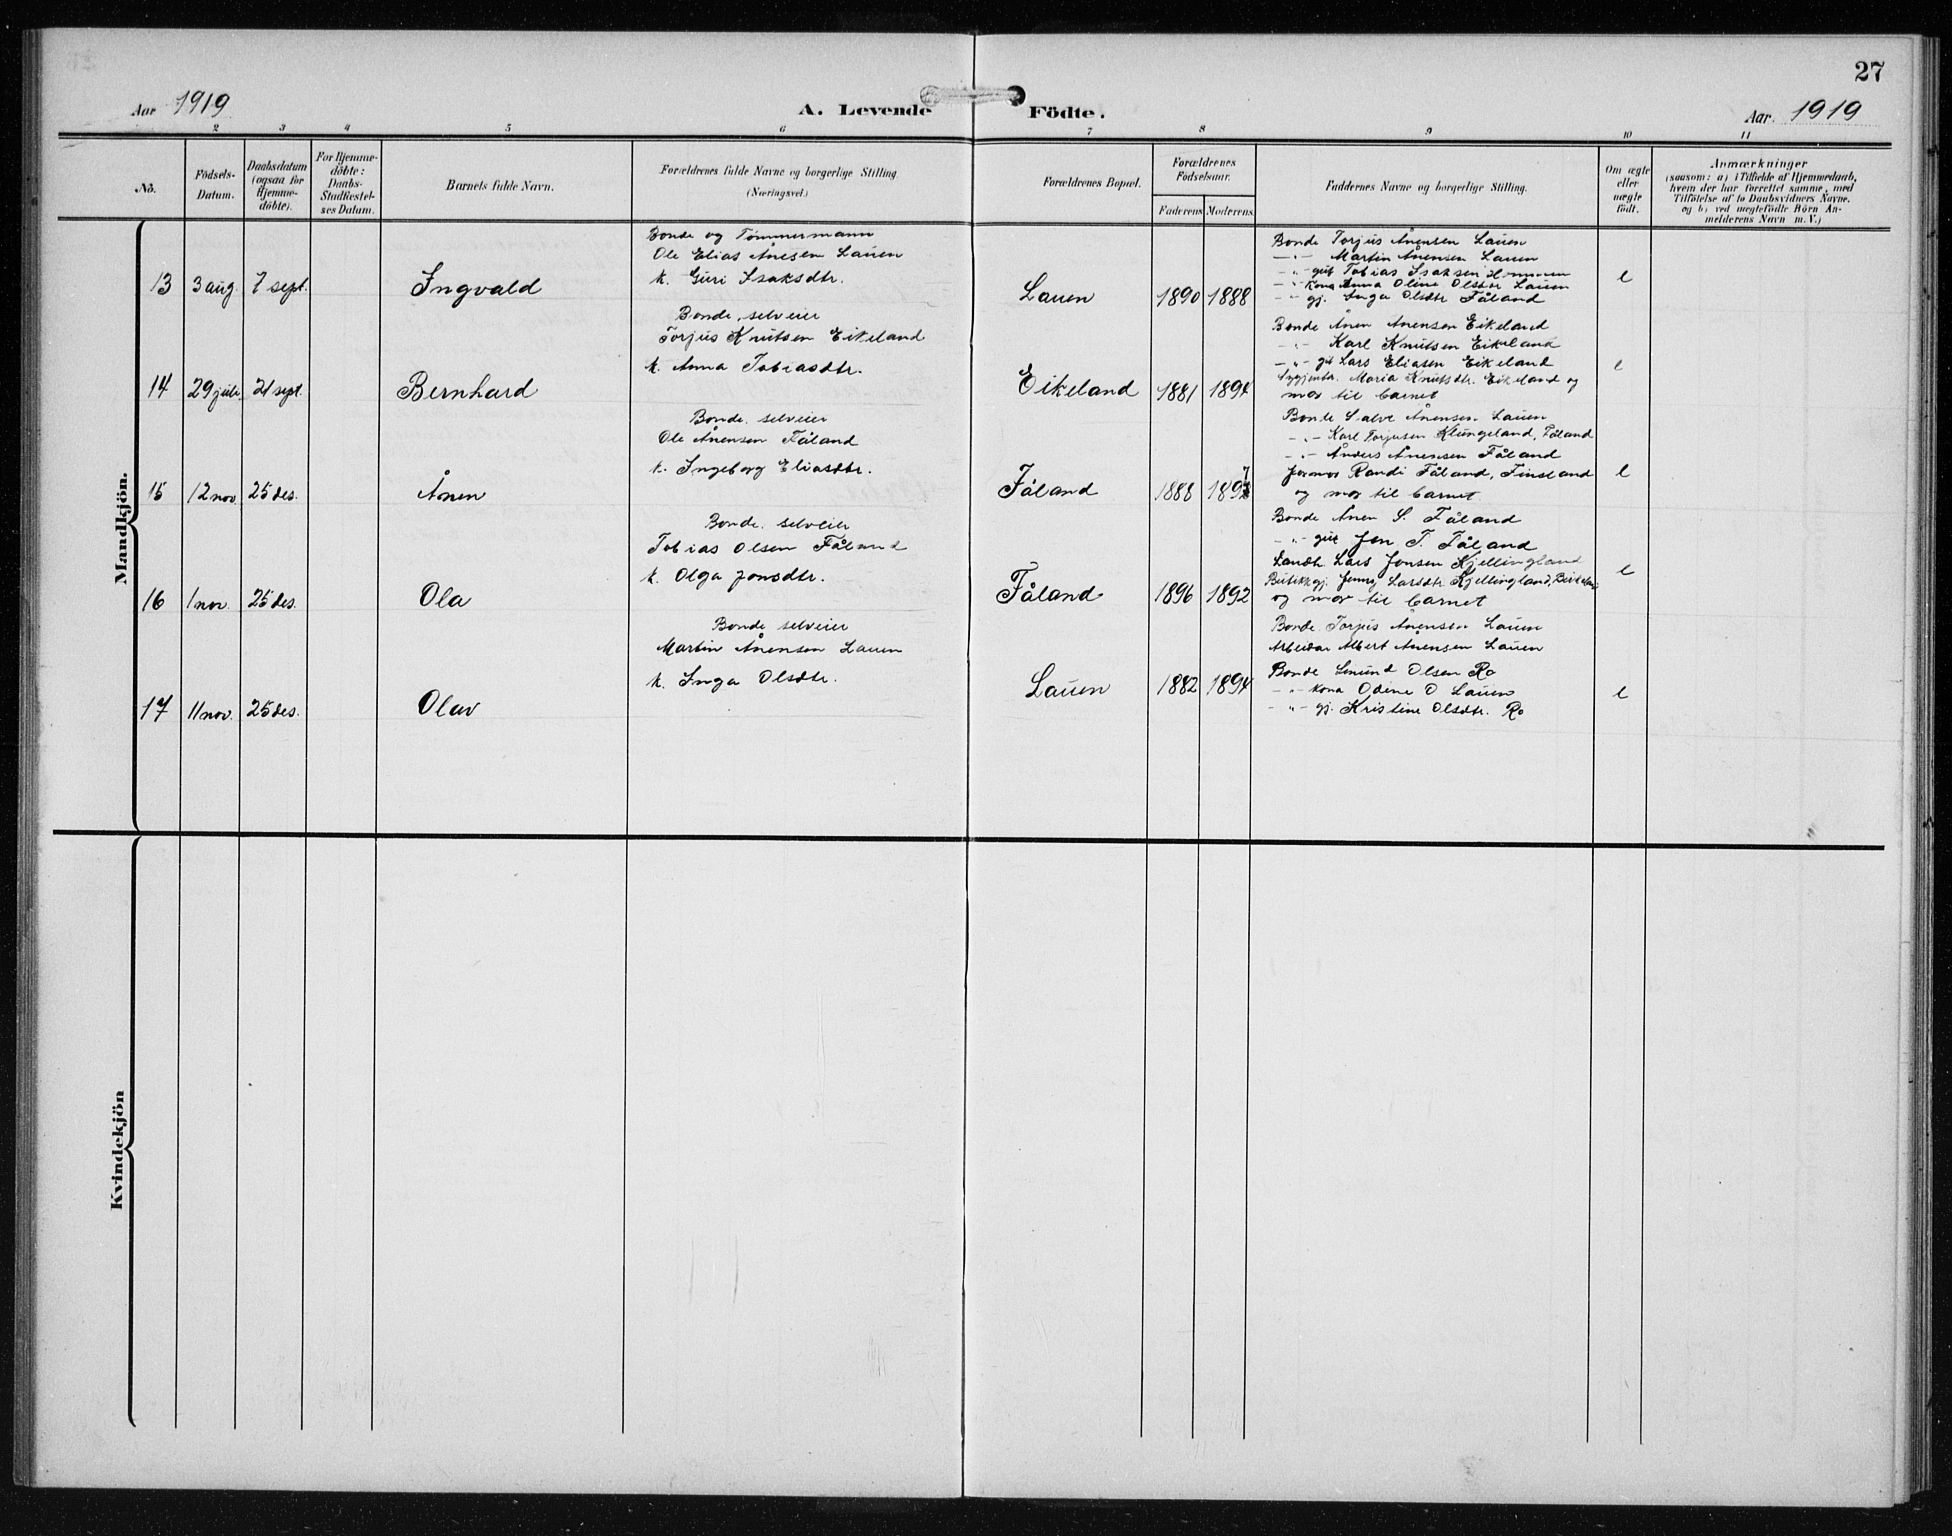 27
Aar 1919
A. Levende Födte.
Aar. 1919
2 3 4 5 6 7 8 9 10 11
No.
Födsels-Datum.
Daabsdatum (ogsaa for Hjemme-döbte).
For Hjemme-döbte: Daabs-Stadfæstel-ses Datum.
Barnets fulde Navn.
Forældrenes fulde Navne og borgerlige Stilling
(Næringsvei.)
Forældrenes Bopæl.
Forældrenes Födselsaar.
Faderens Moderens
Faddernes Navne og borgerlige Stilling.
Om ægte eller uægte födt.
Anmærkninger
(saasom: a) i Tilfælde af Hjemmedaab,
hvem der har forrettet samme, med
Tilföielse af to Daabsvidners Navne.
og b) ved uægtefödte Börn An-
melderens Navn m. V.)
Mandkjön.
13 3 aug. 7 sept. Ingvald
Bonde og Tömmermann
Ole Elias Ånesen Lauen
k. Guri Isaksdtr.
Lauen 1890 1888
Bonde Torjus Ånensen Lauen
-"- Martin Ånensen Lauen
-"- gut Tobias Isaksen
-"- kona Anna Oline Olsdtr Lauen
-"- gj. Inga Olsdtr Fåland
e
14 29 juli 21 sept. Bernhard
Bonde, selveier
Torjus Knutsen Eikeland
k. Anna Tobiasdtr.
Eikeland 1881 1894
Bonde Ånen Ånensen Eikeland
-"- Karl Knutsen Eikeland
-"- gut Lars Eliasen Eikeland
Maria Knutsdtr. Eikeland og
mor til barnet
e
15 12 nov. 25 des. Ånen
Bonde, selveier
Ole Ånensen Fåland
k. Ingeborg Eliasdtr.
Fåland 1888 1897
Bonde Salve Ånensen Lauen
-"- Karl Torjusen Klungeland, Fåland
-"- Anders Ånensen Fåland
Jormor Randi Fåland, Finsland
og mor til barnet
e
16 1 nov. 25 des. Ola
Bonde, selveier
Tobias Olsen Fåland
k. Olga Jonsdtr.
Fåland 1896 1892
Bonde Ånen S. Fåland
-"- gut Jon T. Fåland
Landh. Lars Jonsen Kjellingland
Butikkgj. Jenny Larsdtr Kjellingland,
og mor til barnet
e
17 11 nov. 25 des. Olav
Bonde selveier
Martin Ånensen Lauen
k. Inga Olsdtr.
Lauen 1882 1894
Bonde Torjus Ånensen Lauen
Arbeidar Albert Ånensen Lauen
Bonde Omund Olsen Ro
-"- kona Odine O Lauen
-"- gj. Kristine Olsdtr. Ro
e
Kvindekjön